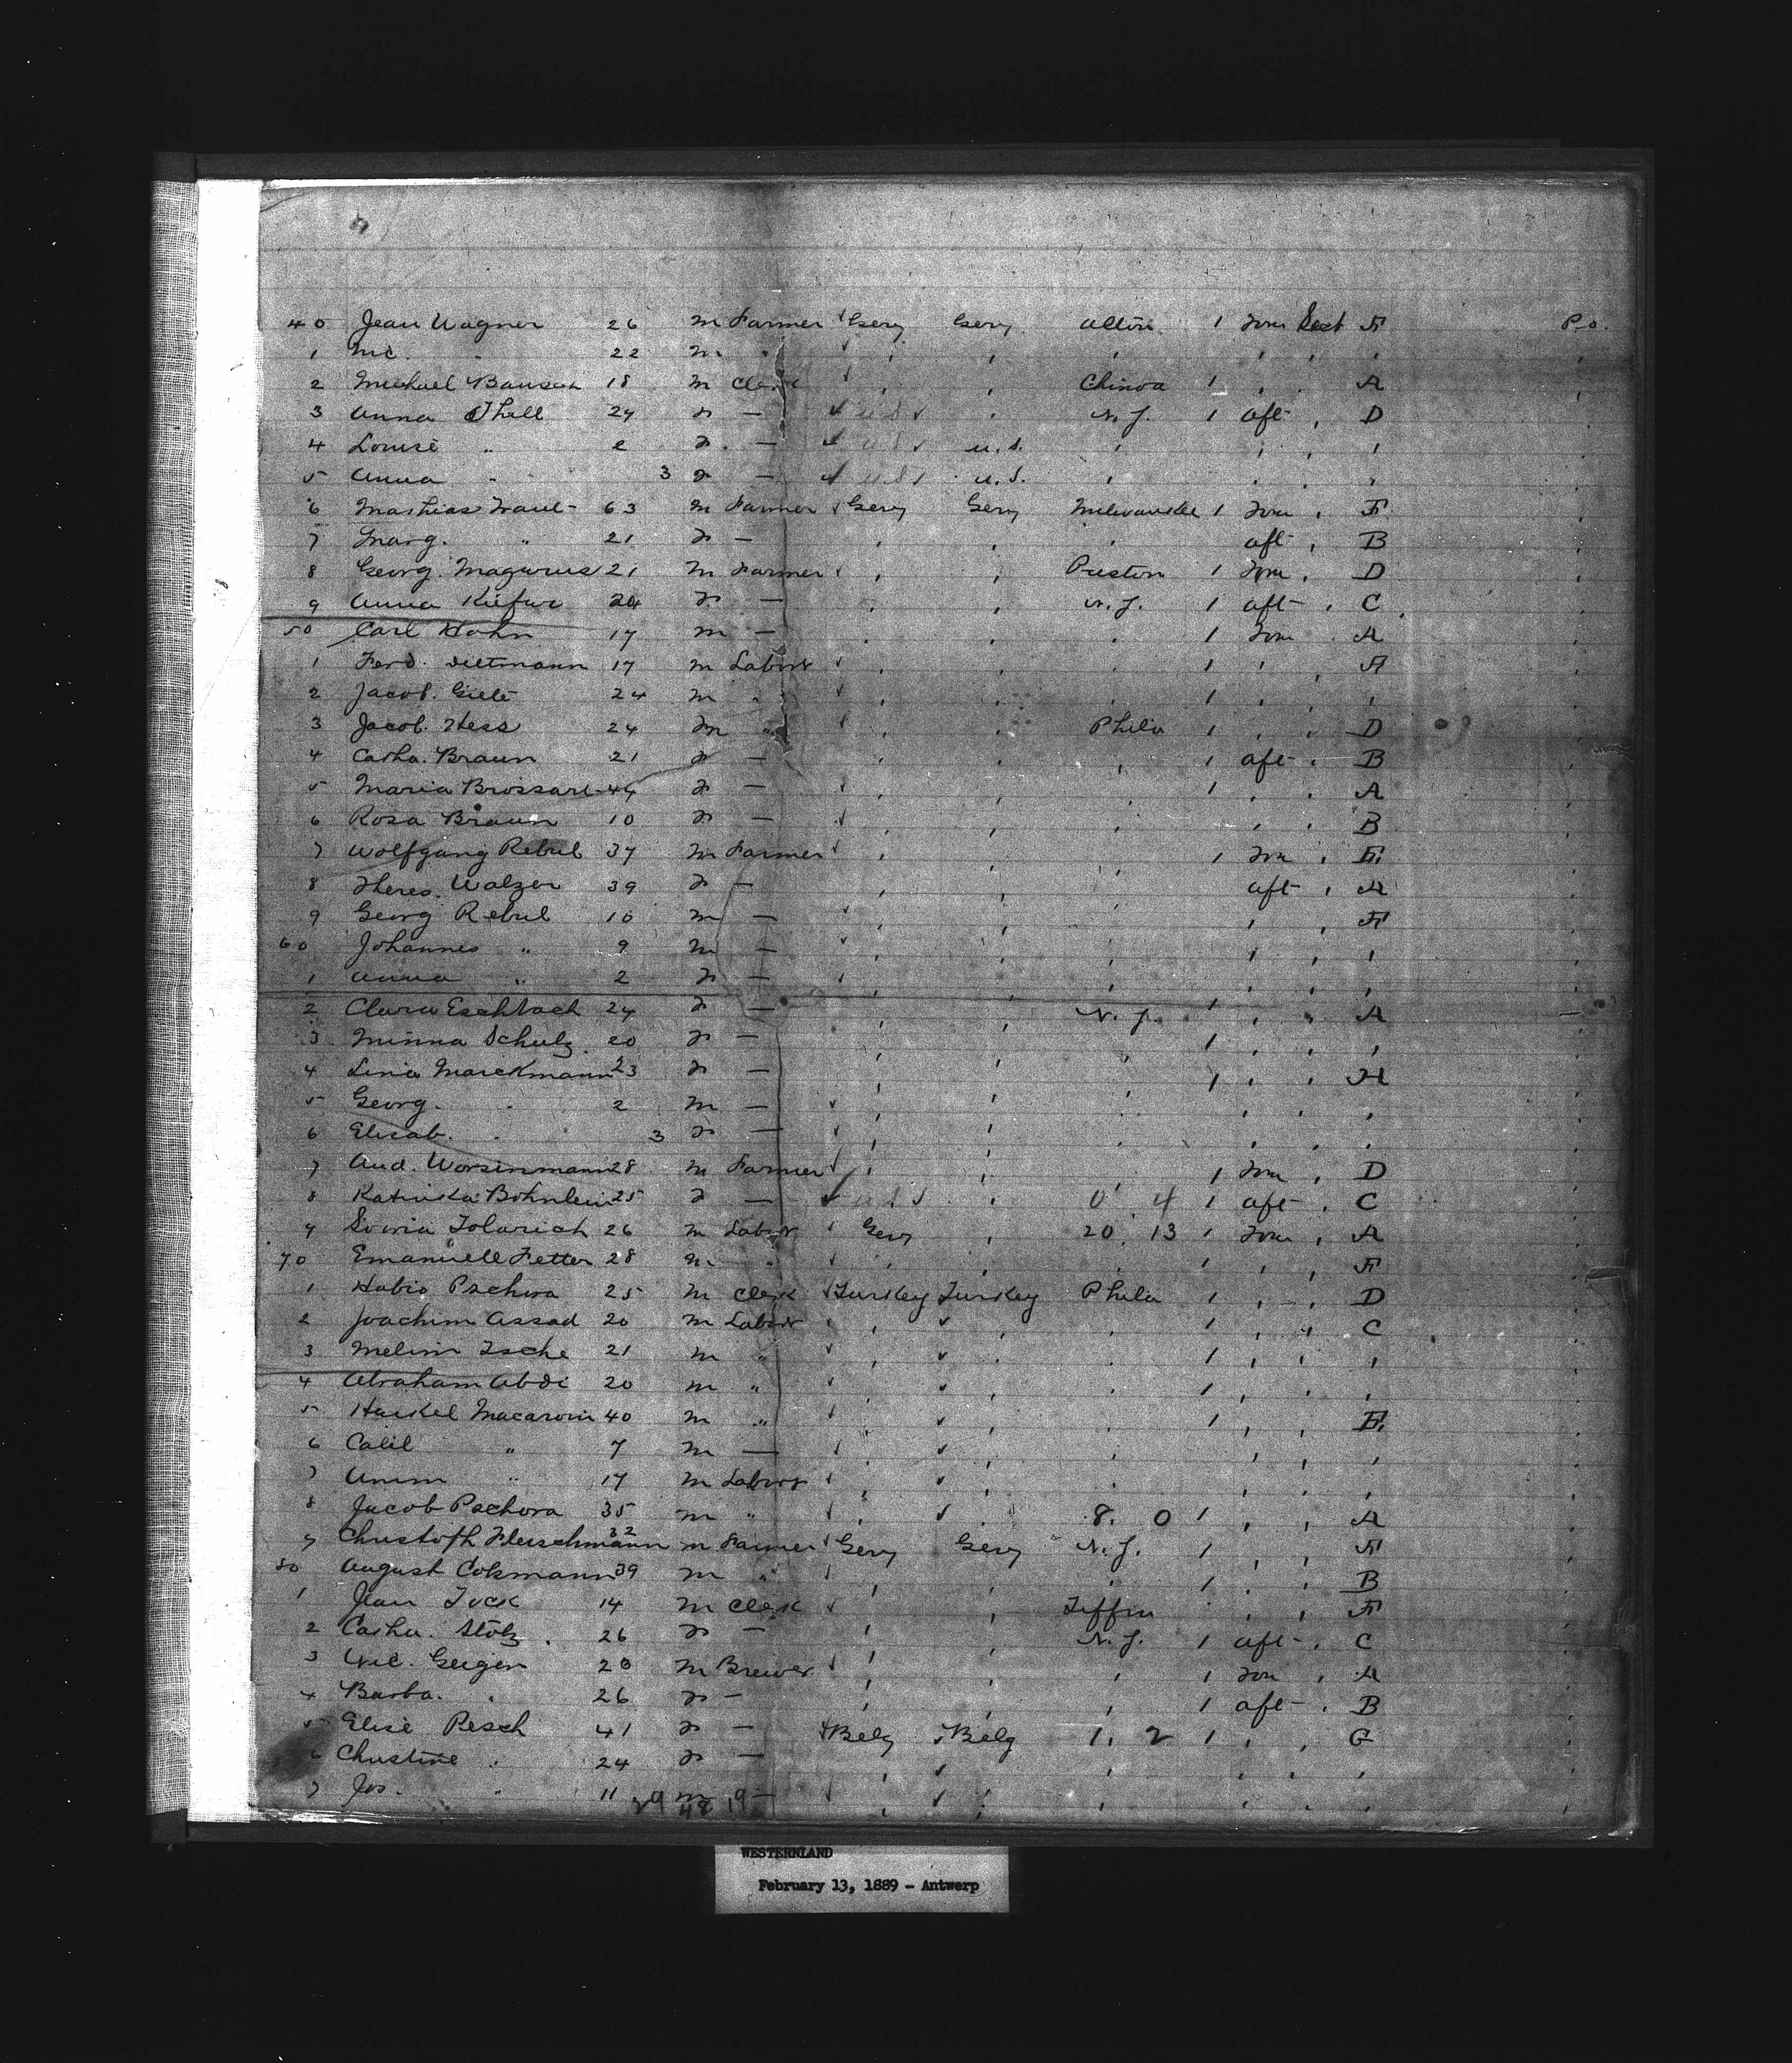 40 Jean Wagner 26 m Farmer Gery Gery Alton 1 Deck F P.O.
1 Nic. " 22 m "
2 Michael Bausch 18 m Clerk Chinoa 1 A
3 Anna Thell 24 f — U.S. N.Y. 1 aft D
4 Louise " 2 f — U.S. U.S.
5 Anna " 3 f — U.S. U.S.
6 Mathias 63 m Farmer Gery Gery Milwaukee 1 F
7 Marg. " 21 f — aft B
8 Georg. Magurus 21 m Farmer Preston 1 D
9 Anna Kiefur 24 f — N.Y. 1 aft C
50 Carl Hohn 17 m — 1 A
1 Ferd. Dietmann 17 m Labors 1 A
2 Jacob. 24 m " 1
3 Jacob. Hess 24 m " Phila 1 D
4 Catha. Braun 21 f — 1 aft B
5 Maria Brossart 44 f — 1 A
6 Rosa Braun 10 f — B
7 Wolfgang Rebul 37 m Farmer 1 F
8 Theres. Walzer 39 f — aft A
9 Georg Rebul 10 m — F
60 Johannes " 9 m —
1 Anna " 2 f —
2 Clara Eschbach 24 f — N.Y. 1 A
3 Minna Schulz 20 f — 1
4 Lina Marckmann 23 f — 1 H
5 Georg. " 2 m —
6 Elisab. " 3 f —
7 And. Worsinmann 28 m Farmer 1 D
8 Katinka Bohnlein 25 f — U.S. 0 4 1 aft C
9 Tolarich 26 m Labor Gery 20 13 1 A
70 Emanuell Fetter 28 m " 1 F
1 Habio Pachora 25 m Clerk Turkey Turkey Phila 1 D
2 Joachim Assad 20 m Labor 1 C
3 Melim Tsche 21 m " 1
4 Abraham Abdi 20 m " 1
5 Haikel Macaroni 40 m " 1 E
6 Calil " 7 m —
7 Amin " 17 m Labors
8 Jacob Pachora 35 m " 8. 0 1 A
9 Christoph Fleischmann 32 m Farmer Gery Gery N.Y. 1 F
80 August Cohmann 39 m " 1 B
1 Jean Tock 14 m Clerk Tiffin F
2 Catha. Stölz 26 f — N.Y. 1 aft C
3 Nic. Geigen 20 m Brewer 1 A
4 Barba. " 26 f — 1 aft B
5 Elise Pesch 41 f — Belg Belg 1. 2 1 G
6 Christine " 24 f —
7 Jos. " 11 m —
29 48 19
WESTERNLAND
February 13, 1889 - Antwerp